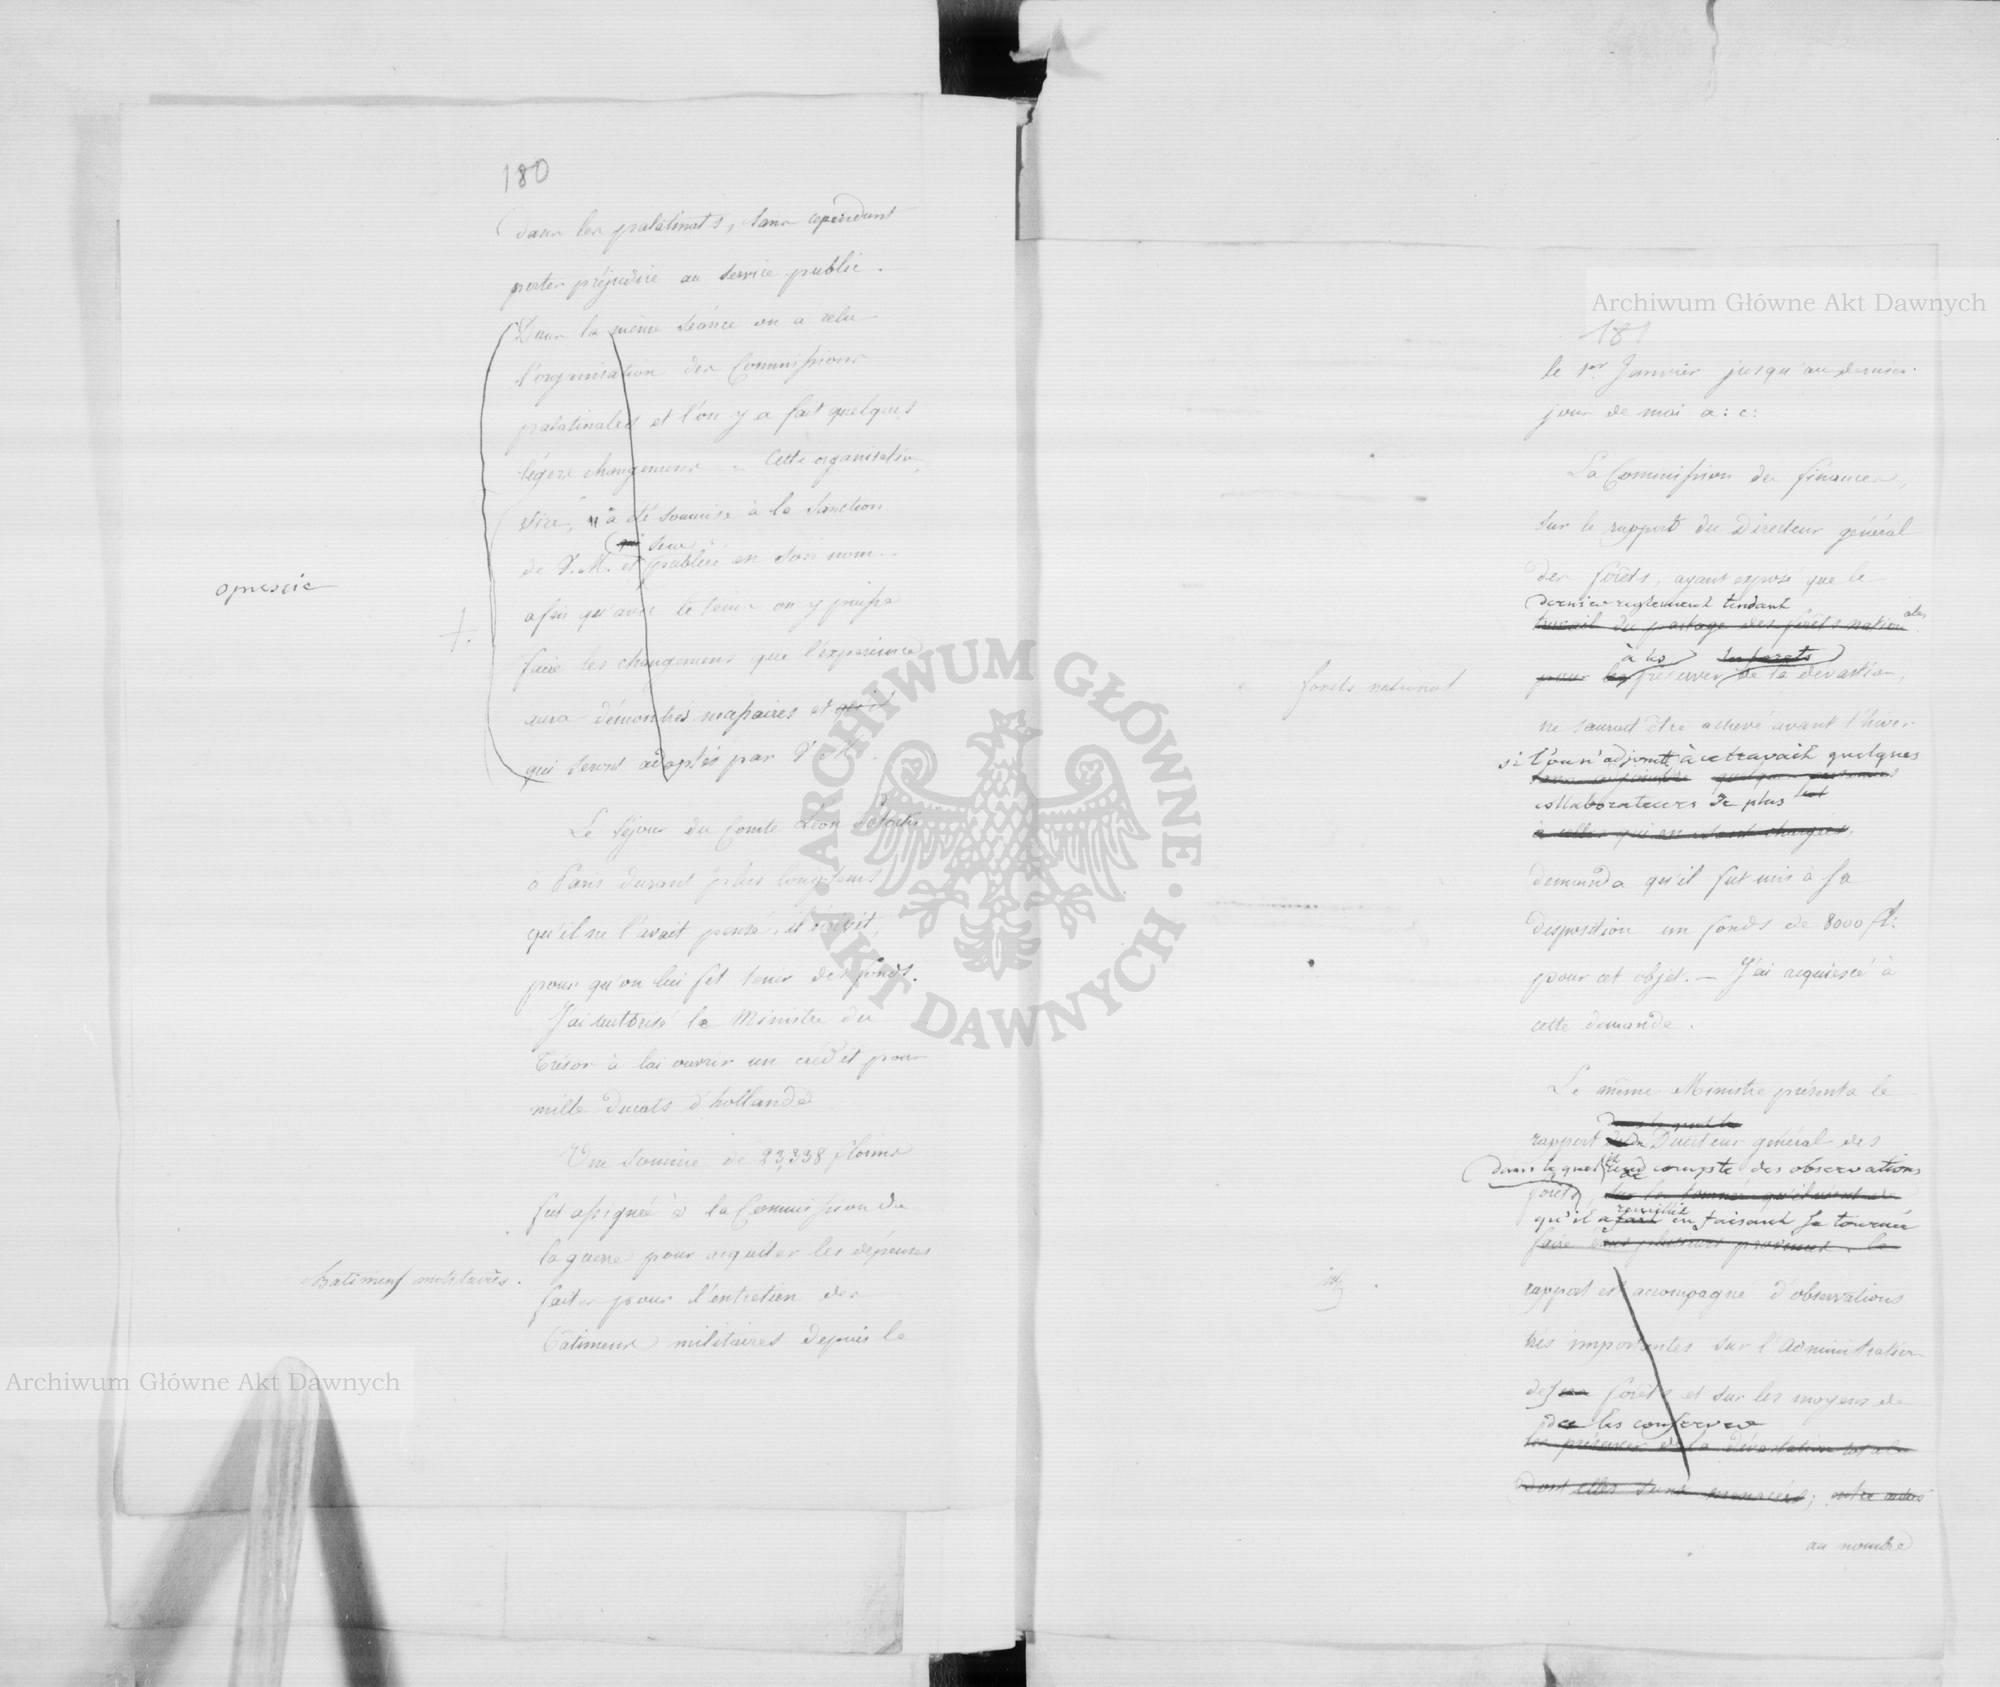 180
dans les palatinats, sans cependant
porter préjudice au service public.
Dans la même séance on a relu
l'organisation des Commissions
palatinales et l'on y a fait quelques
légers changemens. Cette organisation
Sire, a été soumise à la Sanction
sera
de V. M. et publiée en Son nom
afin qu'avec le tems on y puisse
faire les changemens que l'expérience
aura démontrés nécessaires et
qui seront adoptés par V. M.
opuscic
Le séjour du Comte Léon Potocki
à Paris durant plus longtems
qu'il ne l'avait pensé, il écrivit,
pour qu'on lui fit tenir des fonds.
J'ai autorisé le Ministre du
Trésor à lui ouvrir un crédit pour
mille ducats d'hollande
Une somme de 23,338 florins
fut assignée à la Commission de
la guerre pour acquiter les dépenses
faites pour l'entretien des
batimens militaires depuis le
Batimens militaires.
Archiwum Główne Akt Dawnych
Archiwum Główne Akt Dawnych
181
le 1er Janvier jusqu'au dernier
jour de mai a: c:
La Commission des finances,
sur le rapport du Directeur général
des forêts, ayant exposé que le
dernier reglement tendant
travail du partage des forêts nationales
à les les forets
pour les préserver de la dévastation,
ne sauroit être achevé avant l'hiver
si l'on n'adjoint à ce travail quelques
collaborateurs de plus
à celles qui en sont chargées,
demanda qu'il fut mis à sa
disposition un fonds de 8000 fl:
pour cet objet. — J'ai acquiescé à
cette demande.
forets national
Le même Ministre présenta le
dans lequel le
rapport du Directeur général des
dans lequel il rend compte des observations
forêts, sur la tournée qu'il vient de
qu'il a fait en faisant sa tournée
faire dans plusieurs provinces. le
rapport est accompagné d'observations
très importantes sur l'administration
des forêts et sur les moyens de
de les conserver
les préserver de la dévastation totale
dont elles sont menacées; entre autres
au nombre
ARCHIWUM GŁÓWNE AKT DAWNYCH